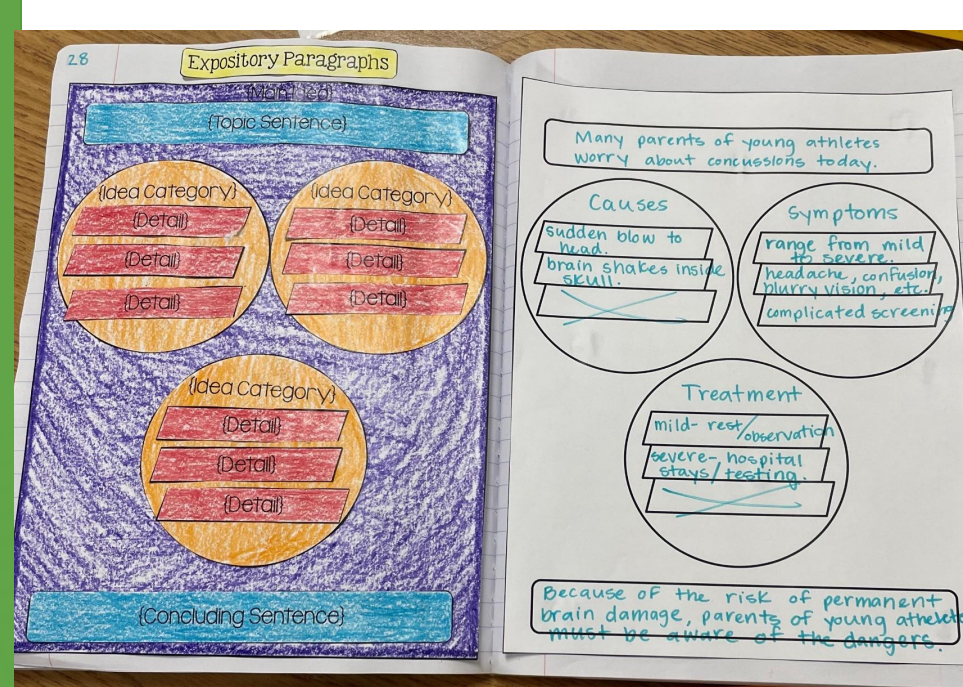 28
Expository Paragraphs
{Main Idea}
{Topic Sentence}
{Idea Category}
{Detail}
{Detail}
{Detail}
{Idea Category}
{Detail}
{Detail}
{Detail}
{Idea Category}
{Detail}
{Detail}
{Detail}
{Concluding Sentence}
Many parents of young athletes
worry about concussions today.
Causes
sudden blow to
head.
brain shakes inside
skull.
Symptoms
range from mild
to severe.
headache, confusion,
blurry vision, etc.
complicated screenin
Treatment
mild- rest/observation
severe-, hospital
stays/testing.
Because of the risk of permanent
brain damage, parents of young athelet
must be aware of the dangers.